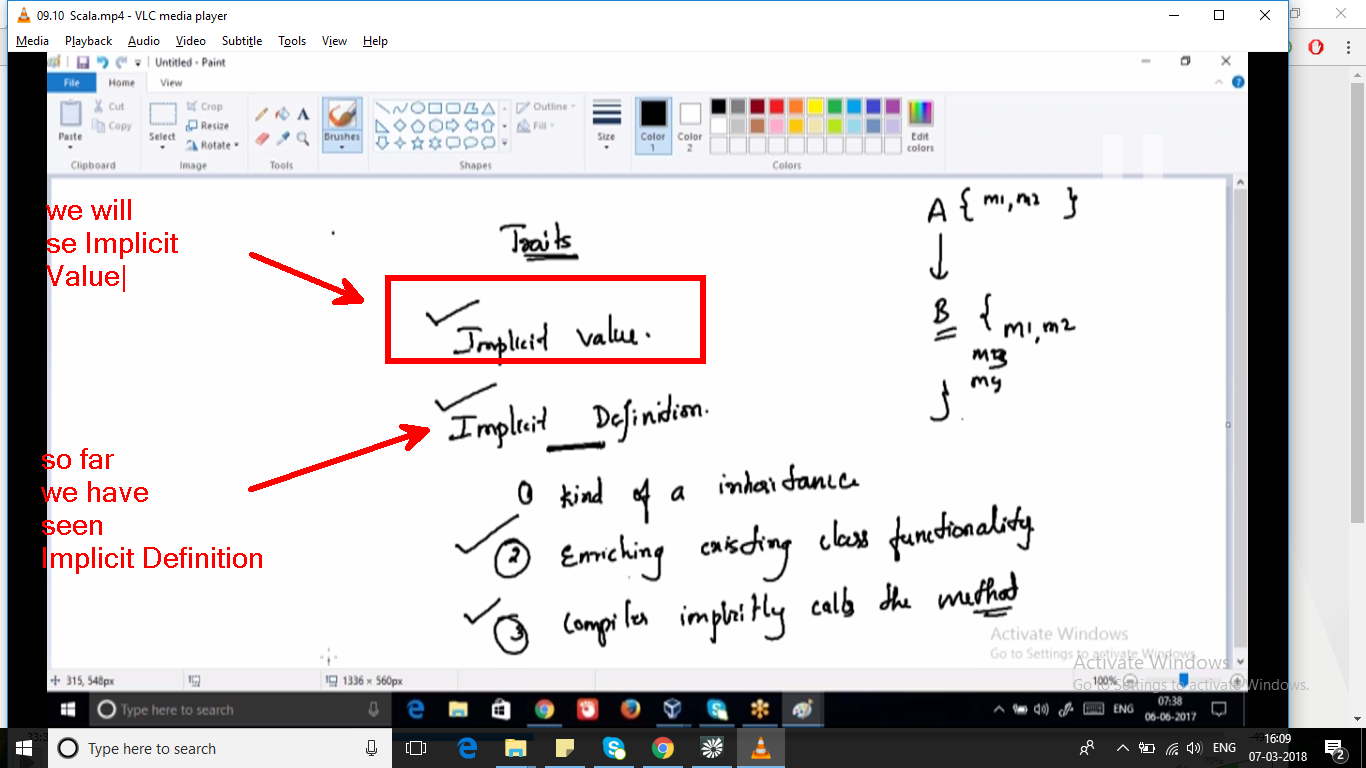 09.10 Scala.mp4 - VLC media player
Media Playback Audio Video Subtitle Tools View Help
Untitled - Paint
File Home View
Paste
Cut
Copy
Clipboard
Select
Crop
Resize
Rotate
Image
Tools
Brushes
Outline
Fill
Shapes
Size
Color
1
Color
2
Edit
colors
Colors
we will
se Implicit
Value
Traits
Implicit value.
Implicit Definition.
so far
we have
seen
Implicit Definition
① kind of a inheritance
② Enriching existing class functionality
③ compiler implicitly calls the method
A { m1, m2 }
B {
m1, m2
}
Activate Windows
Go to Settings to activate Windows.
Activate Windows
Go to Settings to activate Windows.
315, 548px
1336 × 560px
100%
Type here to search
ENG
07:38
06-06-2017
Type here to search
ENG
16:09
07-03-2018
2